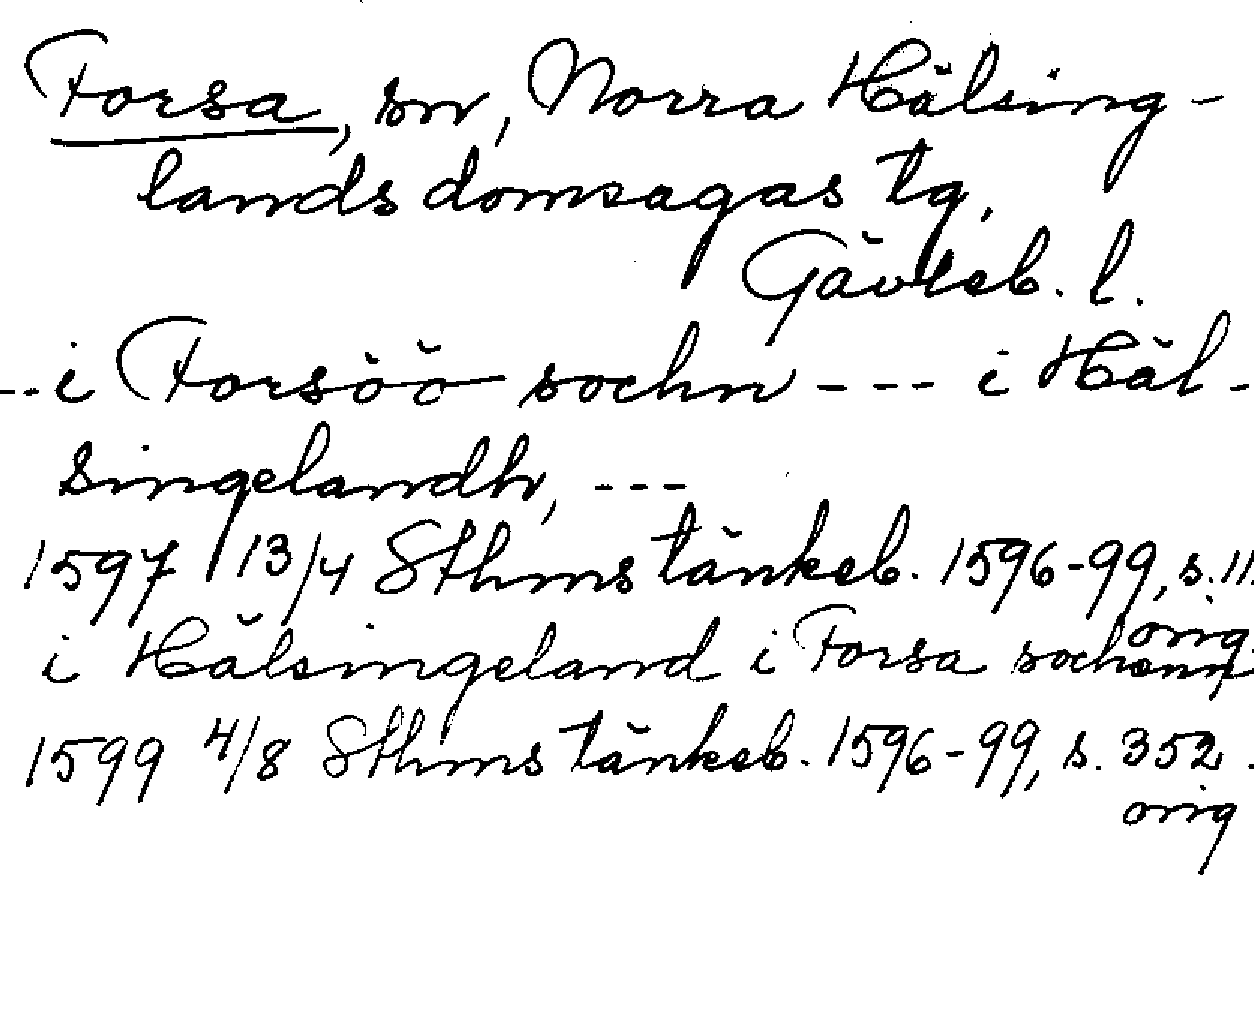 Forsa, sn, Norra Hälsing-
lands domsagas tg,
Gävleb. l.
--i Forsöö sochn --- i Häl-
singelandh, ---
1597 13/4 Sthms tänkeb. 1596-99, s. 11
orig.
i Hälsingeland i Forsa sochenn,
1599 4/8 Sthms tänkeb. 1596-99, s. 352.
orig